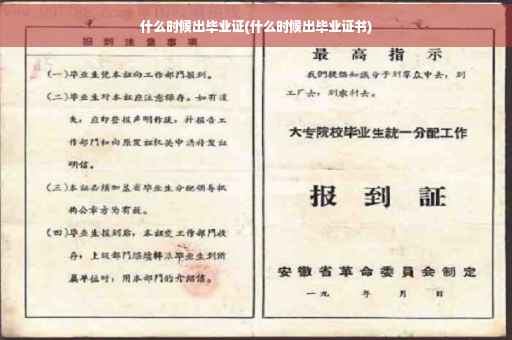 什么时候出毕业证(什么时候出毕业证书)
报到注意事项
(一)毕业生凭本证向工作部门报到。
(二)毕业生对本证应注意保存。如有遗
失，应即登报声明作废，并报告工
作部门和向原发证机关申请补发证
明信。
(三)本证必须加盖省毕业生分配领导机
构公章方为有效。
(四)毕业生报到后，本证交工作部门收
存，上级部门继续转派毕业生到所
属单位时，用本部门的介绍信。
最高指示
我们提倡知识分子到群众中去，到
工厂去，到农村去。
大专院校毕业生統一分配工作
报到証
安徽省革命委員会制定
一九 年 月 日